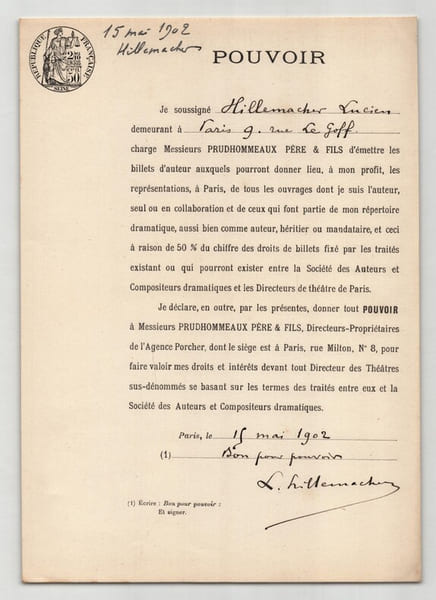 RÉPUBLIQUE FRANÇAISE
50
SEINE
15 mai 1902
Hillemacher
POUVOIR
Je soussigné Hillemacher Lucien
demeurant à Paris 9. rue Le Goff.
charge Messieurs PRUDHOMMEAUX PÈRE & FILS d'émettre les
billets d'auteur auxquels pourront donner lieu, à mon profit, les
représentations, à Paris, de tous les ouvrages dont je suis l'auteur,
seul ou en collaboration et de ceux qui font partie de mon répertoire
dramatique, aussi bien comme auteur, héritier ou mandataire, et ceci
à raison de 50 % du chiffre des droits de billets fixé par les traités
existant ou qui pourront exister entre la Société des Auteurs et
Compositeurs dramatiques et les Directeurs de théâtre de Paris.
Je déclare, en outre, par les présentes, donner tout POUVOIR
à Messieurs PRUDHOMMEAUX PÈRE & FILS, Directeurs-Propriétaires
de l'Agence Porcher, dont le siège est à Paris, rue Milton, N° 8, pour
faire valoir mes droits et intérêts devant tout Directeur des Théâtres
sus-dénommés se basant sur les termes des traités entre eux et la
Société des Auteurs et Compositeurs dramatiques.
Paris, le 15 mai 1902
(1) Bon pour pouvoir
L. Hillemacher
(1) Écrire : Bon pour pouvoir :
Et signer.